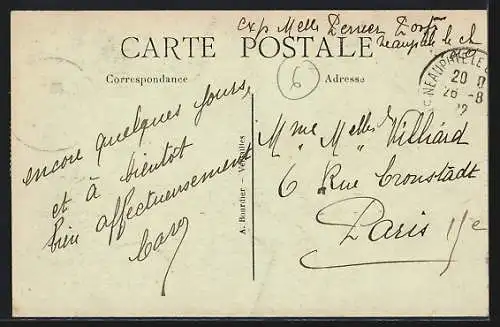 exp Melle
Neauphle le ch
CARTE POSTALE
Correspondance
Adresse
6
NEAUPHLE LE
20
26 - 8
encore quelques jours,
et à bientôt
bien affectueusement
A. Bourdier - Versailles
Mme Melles Villiard
6 Rue Cronstadt
Paris